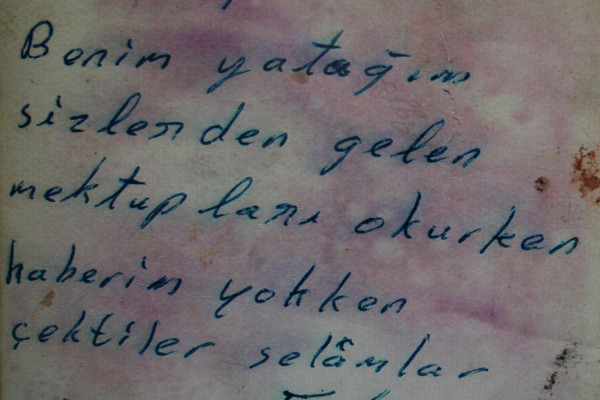 Benim yatağım
sizlerden gelen
mektupları okurken
haberim yokken
çektiler selâmlar